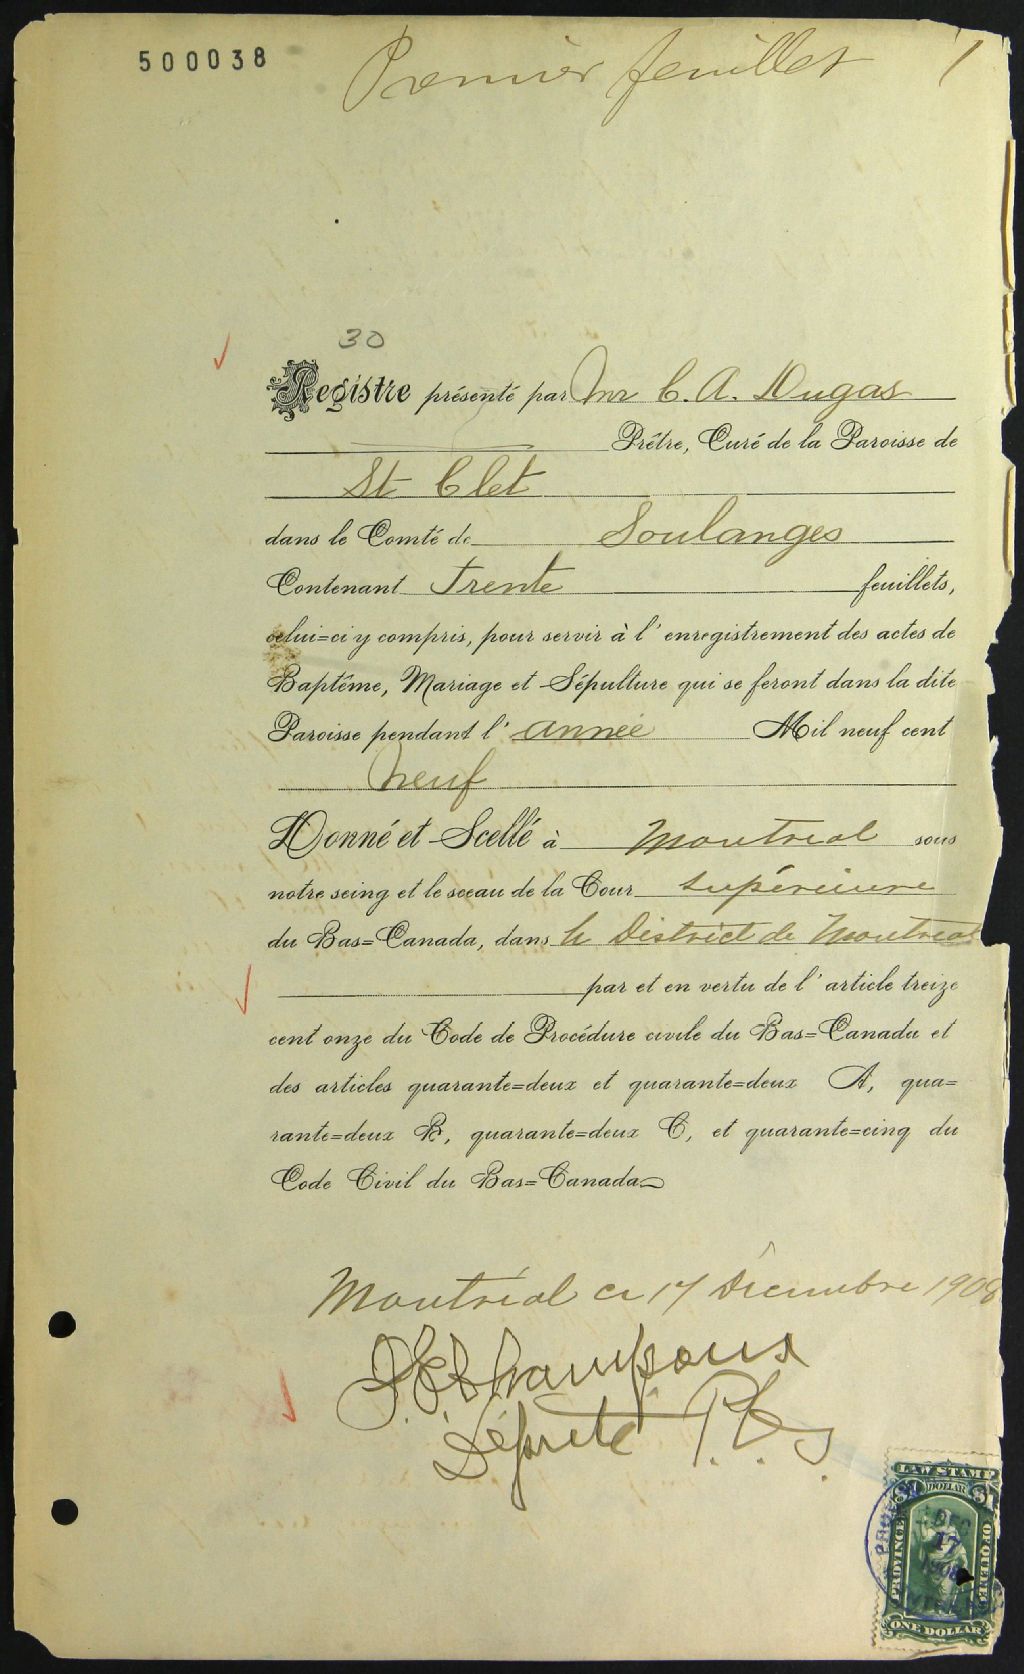 500038
Premier feuillet 1
30
Registre présenté par Mr C. A. Dugas
Prêtre, Curé de la Paroisse de
St Clet
dans le Comté de Soulanges
Contenant Trente feuillets,
celui=ci y compris, pour servir à l'enregistrement des actes de
Baptême, Mariage et Sépulture qui se feront dans la dite
Paroisse pendant l'année Mil neuf cent
neuf
Donné et Scellé à Montréal sous
notre seing et le sceau de la Cour Supérieure
du Bas=Canada, dans le District de Montréal
par et en vertu de l'article treize
cent onze du Code de Procédure civile du Bas=Canada et
des articles quarante=deux et quarante=deux A, qua=
rante=deux B, quarante=deux C, et quarante=cinq du
Code Civil du Bas=Canada
Montréal ce 17 Décembre 1908
Champoux
Député P. C. S.
LAW STAMP
$1 DOLLAR $1
PROVINCE OF QUEBEC
DEC
17
1908
ONE DOLLAR